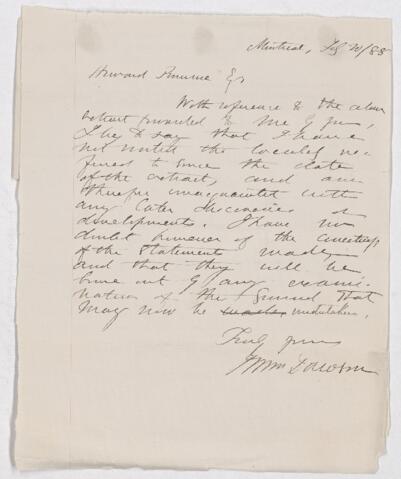 Montreal, Feb 20/88
Howard Esq
With reference to the above
extract forwarded to me by you,
I beg to say that I have
not visited the locality re-
ferred to since the date
of the extract, and am
therefore unacquainted with
any later discoveries or
developments. I have no
doubt however of the correctness
of the statements made
and that they will be
borne out by any exami-
nation of the ground that
may now be undertaken.
Truly yours
Wm Dawson